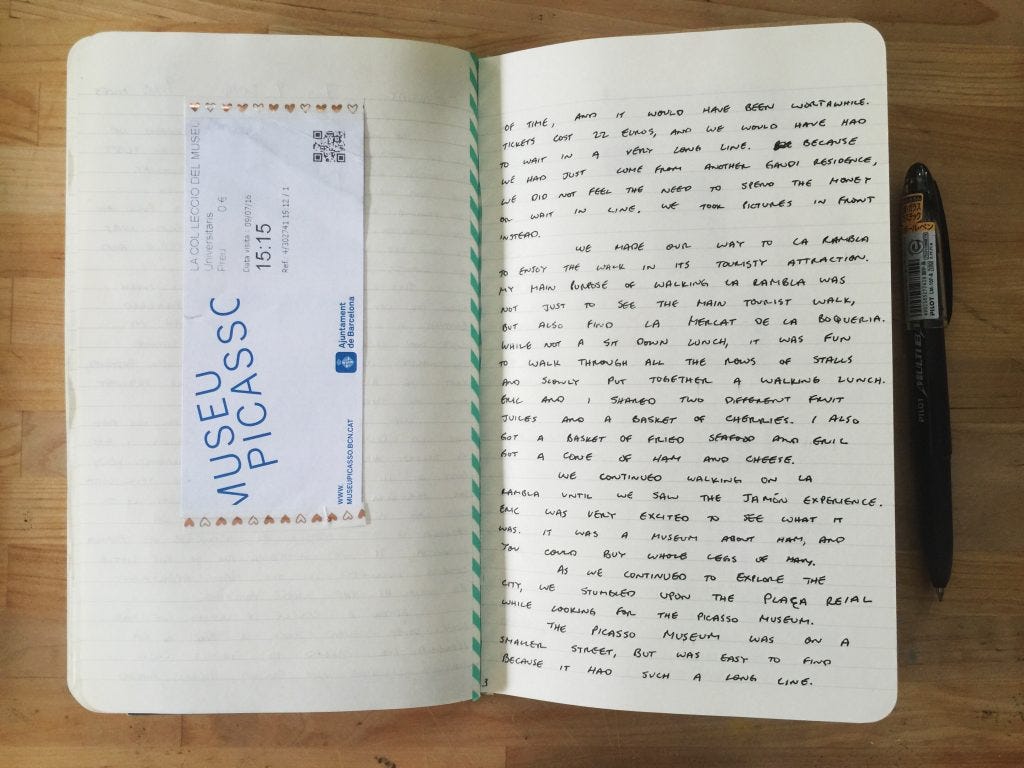 LA COL·LECCIÓ DEL MUSEU
Universitaris
Preu 0 €
Data visita 09/07/16
15:15
Ref. 4/302741 15:12 / 1
MUSEU
PICASSO
Ajuntament
de Barcelona
WWW.
MUSEUPICASSO.BCN.CAT
OF TIME, AND IT WOULD HAVE BEEN WORTHWHILE.
TICKETS COST 22 EUROS, AND WE WOULD HAVE HAD
TO WAIT IN A VERY LONG LINE. BECAUSE
WE HAD JUST COME FROM ANOTHER GAUDI RESIDENCE,
WE DID NOT FEEL THE NEED TO SPEND THE MONEY
OR WAIT IN LINE. WE TOOK PICTURES IN FRONT
INSTEAD.
WE MADE OUR WAY TO LA RAMBLA
TO ENJOY THE WALK IN ITS TOURISTY ATTRACTION.
MY MAIN PURPOSE OF WALKING LA RAMBLA WAS
NOT JUST TO SEE THE MAIN TOURIST WALK,
BUT ALSO FIND LA MERCAT DE LA BOQUERIA.
WHILE NOT A SIT DOWN LUNCH, IT WAS FUN
TO WALK THROUGH ALL THE ROWS OF STALLS
AND SLOWLY PUT TOGETHER A WALKING LUNCH.
ERIC AND I SHARED TWO DIFFERENT FRUIT
JUICES AND A BASKET OF CHERRIES. I ALSO
GOT A BASKET OF FRIED SEAFOOD AND ERIC
GOT A CONE OF HAM AND CHEESE.
WE CONTINUED WALKING ON LA
RAMBLA UNTIL WE SAW THE JAMÓN EXPERIENCE.
ERIC WAS VERY EXCITED TO SEE WHAT IT
WAS. IT WAS A MUSEUM ABOUT HAM, AND
YOU COULD BUY WHOLE LEGS OF HAM.
AS WE CONTINUED TO EXPLORE THE
CITY, WE STUMBLED UPON THE PLAÇA REIAL
WHILE LOOKING FOR THE PICASSO MUSEUM.
THE PICASSO MUSEUM WAS ON A
SMALLER STREET, BUT WAS EASY TO FIND
BECAUSE IT HAD SUCH A LONG LINE.
3
PILOT